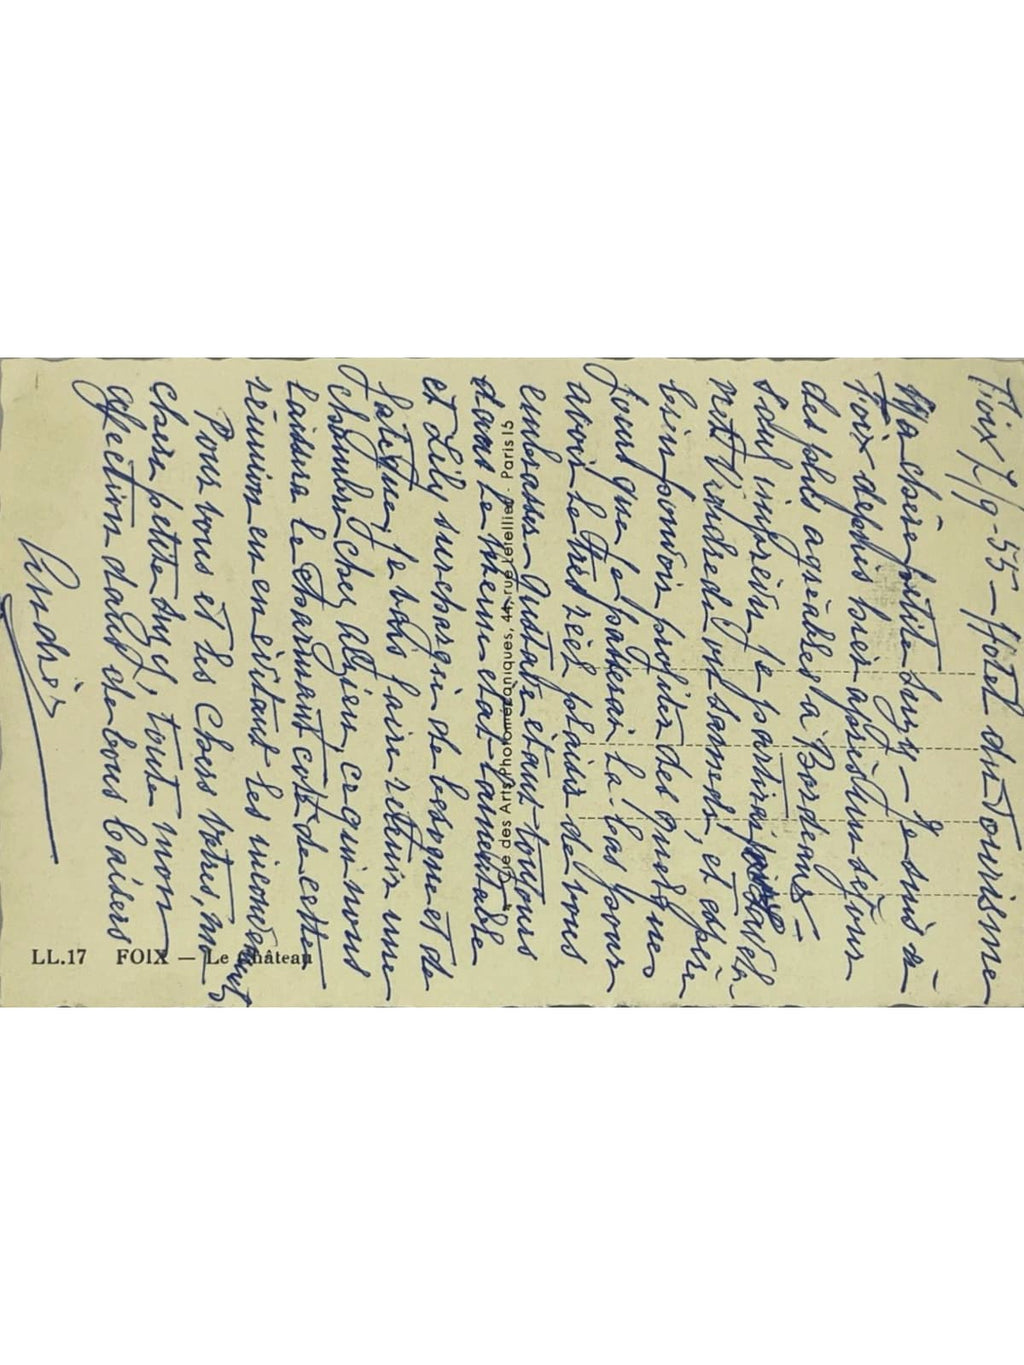 Foix 7/9-55 - Hôtel du Tourisme
Ma chère petite Suzy - Je suis à
Foix depuis hier après un séjour
des plus agréables à Bordeaux -
Sauf imprévu je partirai
Vendredi ou Samedi, et espère
bien pouvoir profiter des quelques
jours que je passerai là-bas pour
avoir le très réel plaisir de vous
embrasser. Gustave étant toujours
dans le même état lamentable
et Lily surchargée de besogne et de
fatigue, je vais faire retenir une
chambre chez ce qui nous
laissera le charmant côté de cette
réunion en en évitant les
Pour vous et les chers vôtres, ma
chère petite Suzy, toute mon
affection dans de bons baisers
André
LL.17 FOIX — Le Château
des Arts Photomécaniques, 44, rue Letellier - Paris 15